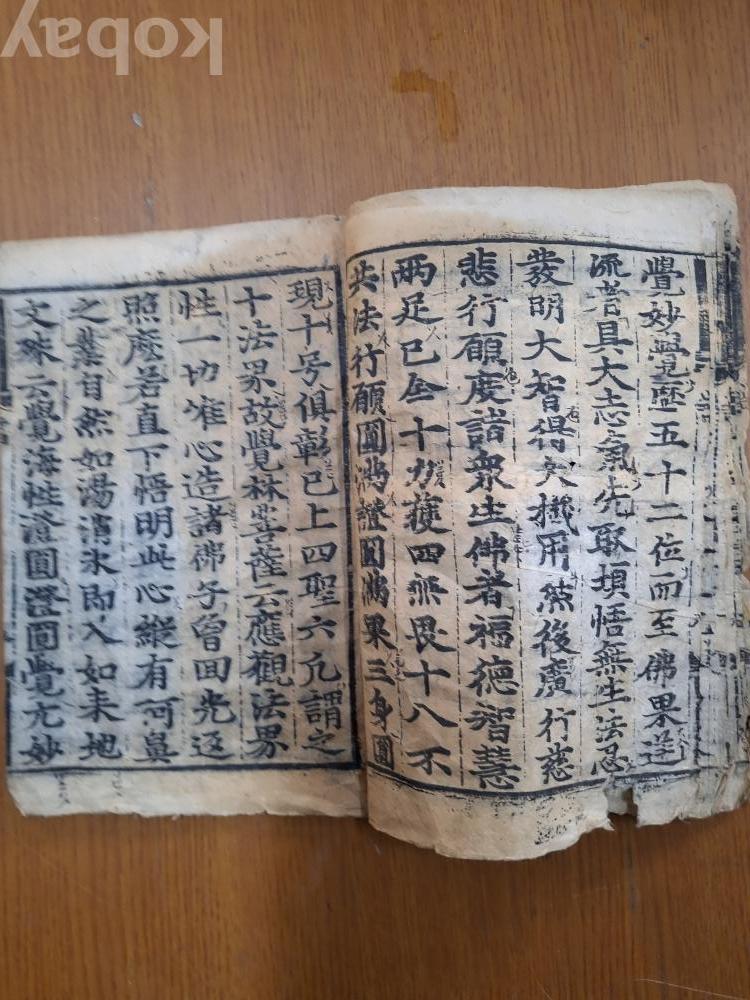 kobay
覺妙覺歷五十二位而至佛果逆
流者具大志氣先取頓悟無生法忍
發明大智得大機用然後廣行慈
悲行願度諸衆生佛者福德智慧
兩足已全十力獲四無畏十八不
共法行願圓滿證圓滿果三身圓
現十号俱彰已上四聖六凡謂之
十法界故覺林菩薩云應觀法界
性一切唯心造諸佛子曾回光返
照麽若直下悟明此心縱有阿鼻
之業自然如湯消氷即入如来地
文殊云覺海性澄圓澄圓覺元妙